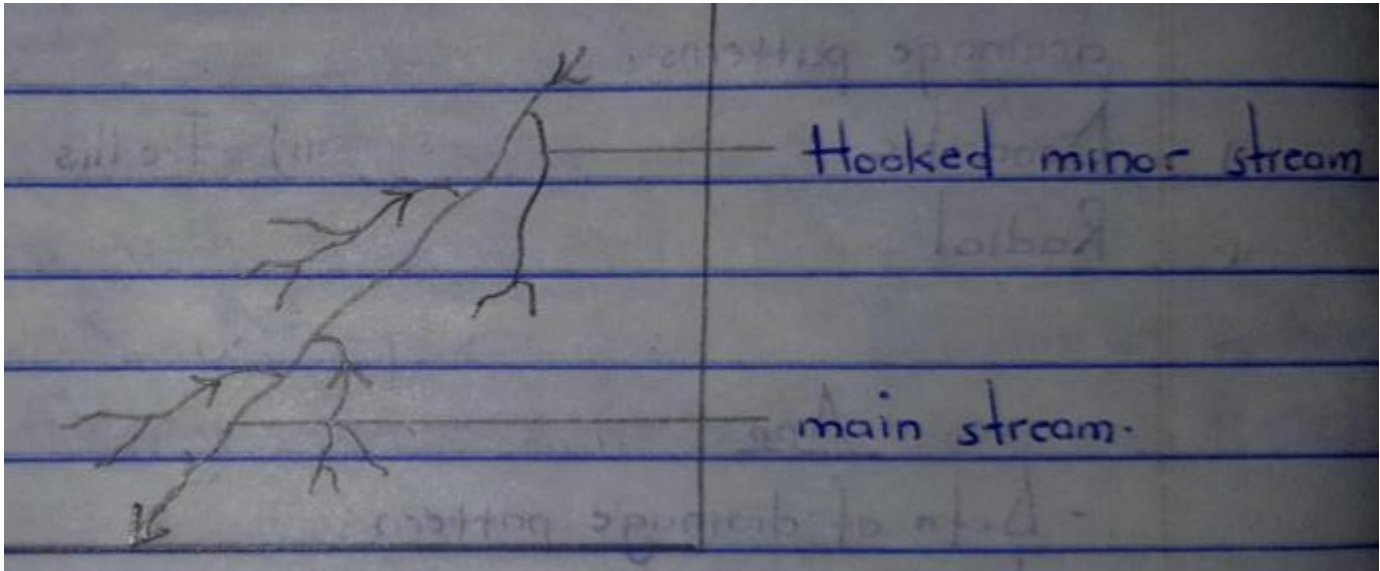 Hooked minor stream
main stream.